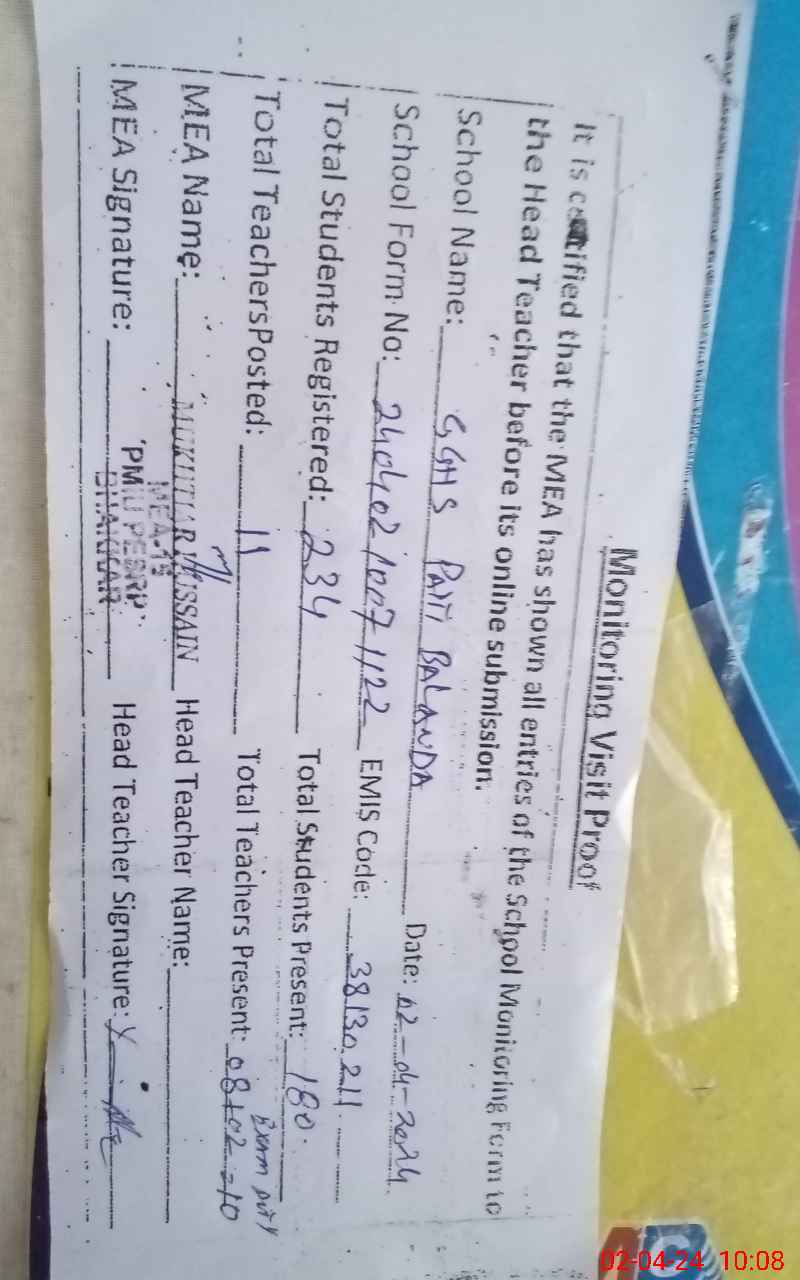 Monitoring Visit Proof
It is certified that the MEA has shown all entries of the School Monitoring Form to
the Head Teacher before its online submission.
School Name: GGHS PATTI BALANDA Date: 02-04-2024
School Form No: 24040210071122 EMIS Code: 38130211
Total Students Registered: 234 Total Students Present: 180.
Total Teachers Posted: 11 Total Teachers Present: 08+02=10
Exam Duty
MEA Name: MUKHTIAR HUSSAIN Head Teacher Name:
MEA-15
MEA Signature: PMIU PESRP Head Teacher Signature:
BHAKKAR
02-04-24 10:08